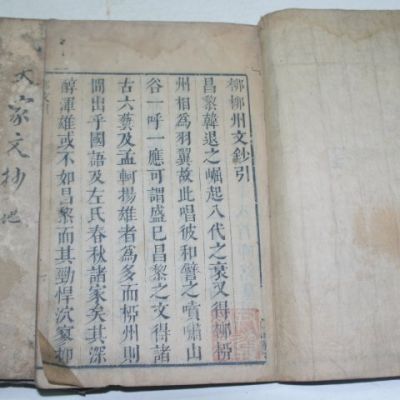 柳柳州文鈔引
昌黎韓退之崛起八代之衰又得柳柳
州相為羽翼故此唱彼和譬之噴嘯山
谷一呼一應可謂盛已昌黎之文得諸
古六藝及孟軻揚雄者為多而柳州則
間出乎國語及左氏春秋諸家矣其深
醇渾雄或不如昌黎而其勁悍泬寥抑
大家文抄 地